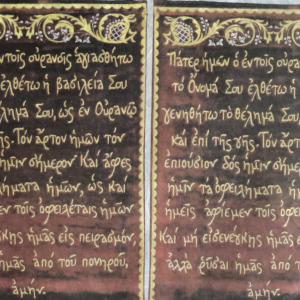 ἐντοῖς οὐρανοῖς ἁγιασθήτω
ἐλθέτω ἡ βασιλεία Σου
θέλημά Σου, ὡς ἐν Οὐρανῷ
γῆς. Τὸν ἄρτον ἡμῶν τὸν
ἡμῖν σήμερον Καὶ ἄφες
ὀφειλήματα ἡμῶν, ὡς καὶ
τοῖς ὀφειλέταις ἡμῶν
ἡμᾶς εἰς πειρασμόν,
ἡμᾶς ἀπὸ τοῦ πονηροῦ,
ἀμήν.
Πάτερ ἡμῶν ὁ ἐντοῖς
τὸ Ὄνομά Σου ἐλθέτω ἡ
γενηθήτω τὸ θέλημά Σου,
καὶ ἐπὶ τῆς γῆς. Τὸν
ἐπιούσιον δὸς ἡμῖν
ἡμῖν τὰ ὀφειλήματα
ἡμεῖς ἀφίεμεν τοῖς
Καὶ μὴ εἰσενέγκης ἡμᾶς
ἀλλὰ ῥῦσαι ἡμᾶς ἀπὸ
ἀμήν